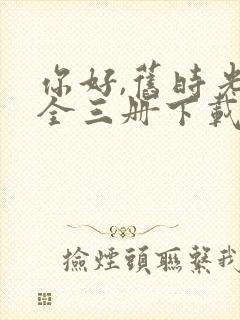 你好,舊時光
全三册下載
撿煙頭聯繫我